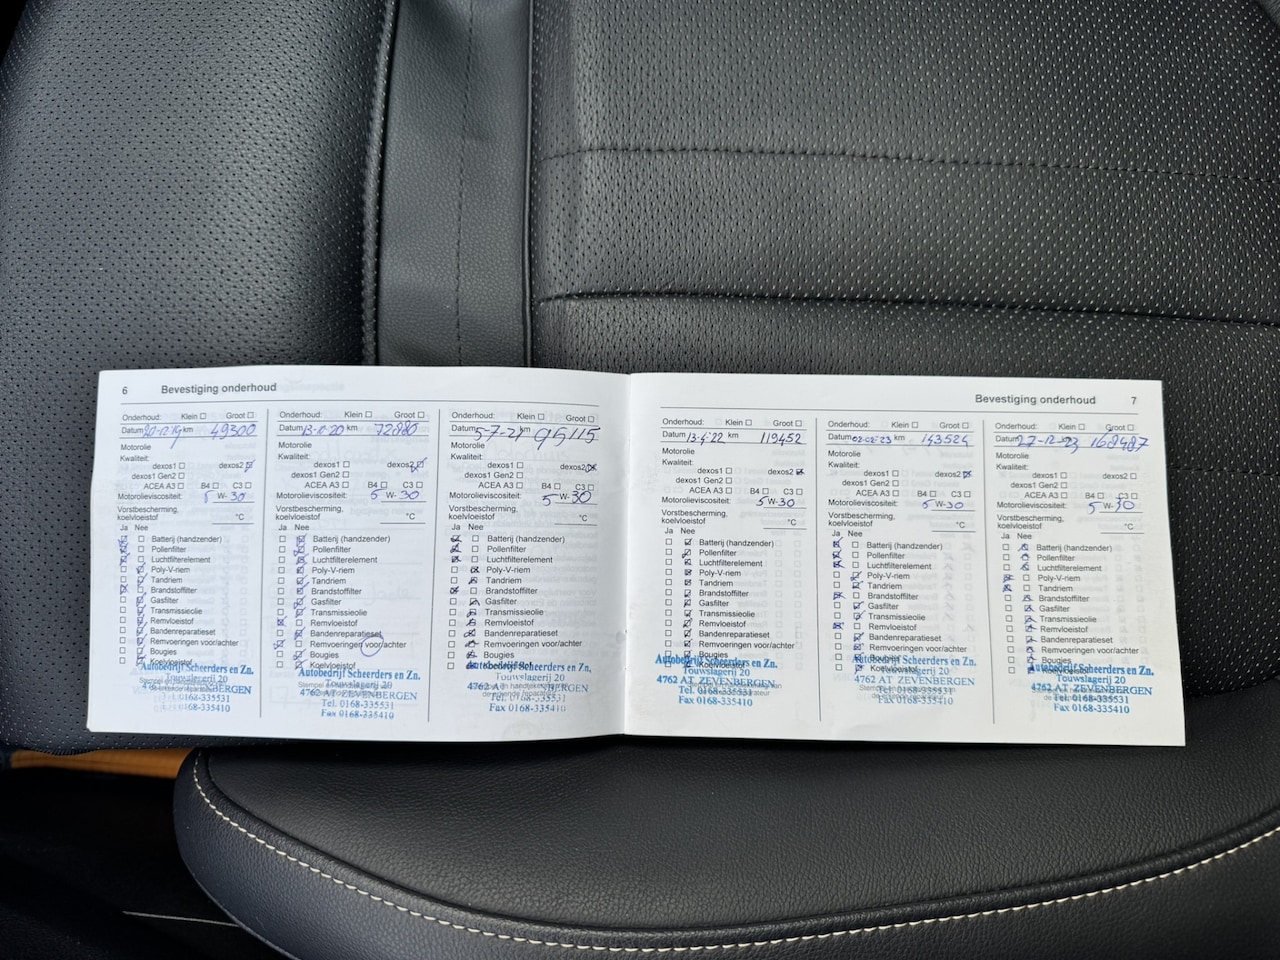 6 Bevestiging onderhoud
Onderhoud: Klein Groot
Datum 20-12-19 km 49300
Motorolie
Kwaliteit:
dexos1 dexos2
dexos1 Gen2
ACEA A3 B4 C3
Motorolieviscositeit: 5 W-30
Vorstbescherming,
koelvloeistof °C
Ja Nee
Batterij (handzender)
Pollenfilter
Luchtfilterelement
Poly-V-riem
Tandriem
Brandstoffilter
Gasfilter
Transmissieolie
Remvloeistof
Bandenreparatieset
Remvoeringen voor/achter
Bougies
Koelvloeistof
Autobedrijf Scheerders en Zn.
Touwslagerij 20
ZEVENBERGEN
Tel. 0168-335531
Fax 0168-335410
Onderhoud: Klein Groot
Datum km 72880
Motorolie
Kwaliteit:
dexos1 dexos2
dexos1 Gen2
ACEA A3 B4 C3
Motorolieviscositeit: 5 W-30
Vorstbescherming,
koelvloeistof °C
Ja Nee
Batterij (handzender)
Pollenfilter
Luchtfilterelement
Poly-V-riem
Tandriem
Brandstoffilter
Gasfilter
Transmissieolie
Remvloeistof
Bandenreparatieset
Remvoeringen voor/achter
Bougies
Koelvloeistof
Autobedrijf Scheerders en Zn.
Touwslagerij 20
4762 AT ZEVENBERGEN
Tel. 0168-335531
Fax 0168-335410
Onderhoud: Klein Groot
Datum 5-7-21 km 95115
Motorolie
Kwaliteit:
dexos1 dexos2
dexos1 Gen2
ACEA A3 B4 C3
Motorolieviscositeit: 5 W-30
Vorstbescherming,
koelvloeistof °C
Ja Nee
Batterij (handzender)
Pollenfilter
Luchtfilterelement
Poly-V-riem
Tandriem
Brandstoffilter
Gasfilter
Transmissieolie
Remvloeistof
Bandenreparatieset
Remvoeringen voor/achter
Bougies
Koelvloeistof
Autobedrijf Scheerders en Zn.
Touwslagerij 20
4762 AT ZEVENBERGEN
Tel. 0168-335531
Fax 0168-335410
Bevestiging onderhoud 7
Onderhoud: Klein Groot
Datum 13-4-22 km 119452
Motorolie
Kwaliteit:
dexos1 dexos2
dexos1 Gen2
ACEA A3 B4 C3
Motorolieviscositeit: 5 W-30
Vorstbescherming,
koelvloeistof °C
Ja Nee
Batterij (handzender)
Pollenfilter
Luchtfilterelement
Poly-V-riem
Tandriem
Brandstoffilter
Gasfilter
Transmissieolie
Remvloeistof
Bandenreparatieset
Remvoeringen voor/achter
Bougies
Koelvloeistof
Autobedrijf Scheerders en Zn.
Touwslagerij 20
4762 AT ZEVENBERGEN
Tel. 0168-335531
Fax 0168-335410
Onderhoud: Klein Groot
Datum 02-02-23 km 143524
Motorolie
Kwaliteit:
dexos1 dexos2
dexos1 Gen2
ACEA A3 B4 C3
Motorolieviscositeit: 5 W-30
Vorstbescherming,
koelvloeistof °C
Ja Nee
Batterij (handzender)
Pollenfilter
Luchtfilterelement
Poly-V-riem
Tandriem
Brandstoffilter
Gasfilter
Transmissieolie
Remvloeistof
Bandenreparatieset
Remvoeringen voor/achter
Bougies
Koelvloeistof
Autobedrijf Scheerders en Zn.
Touwslagerij 20
4762 AT ZEVENBERGEN
Tel. 0168-335531
Fax 0168-335410
Onderhoud: Klein Groot
Datum 27-12-23 168487
Motorolie
Kwaliteit:
dexos1 dexos2
dexos1 Gen2
ACEA A3 B4 C3
Motorolieviscositeit: 5 W-30
Vorstbescherming,
koelvloeistof °C
Ja Nee
Batterij (handzender)
Pollenfilter
Luchtfilterelement
Poly-V-riem
Tandriem
Brandstoffilter
Gasfilter
Transmissieolie
Remvloeistof
Bandenreparatieset
Remvoeringen voor/achter
Bougies
Autobedrijf Scheerders en Zn.
Touwslagerij 20
4762 AT ZEVENBERGEN
Tel. 0168-335531
Fax 0168-335410